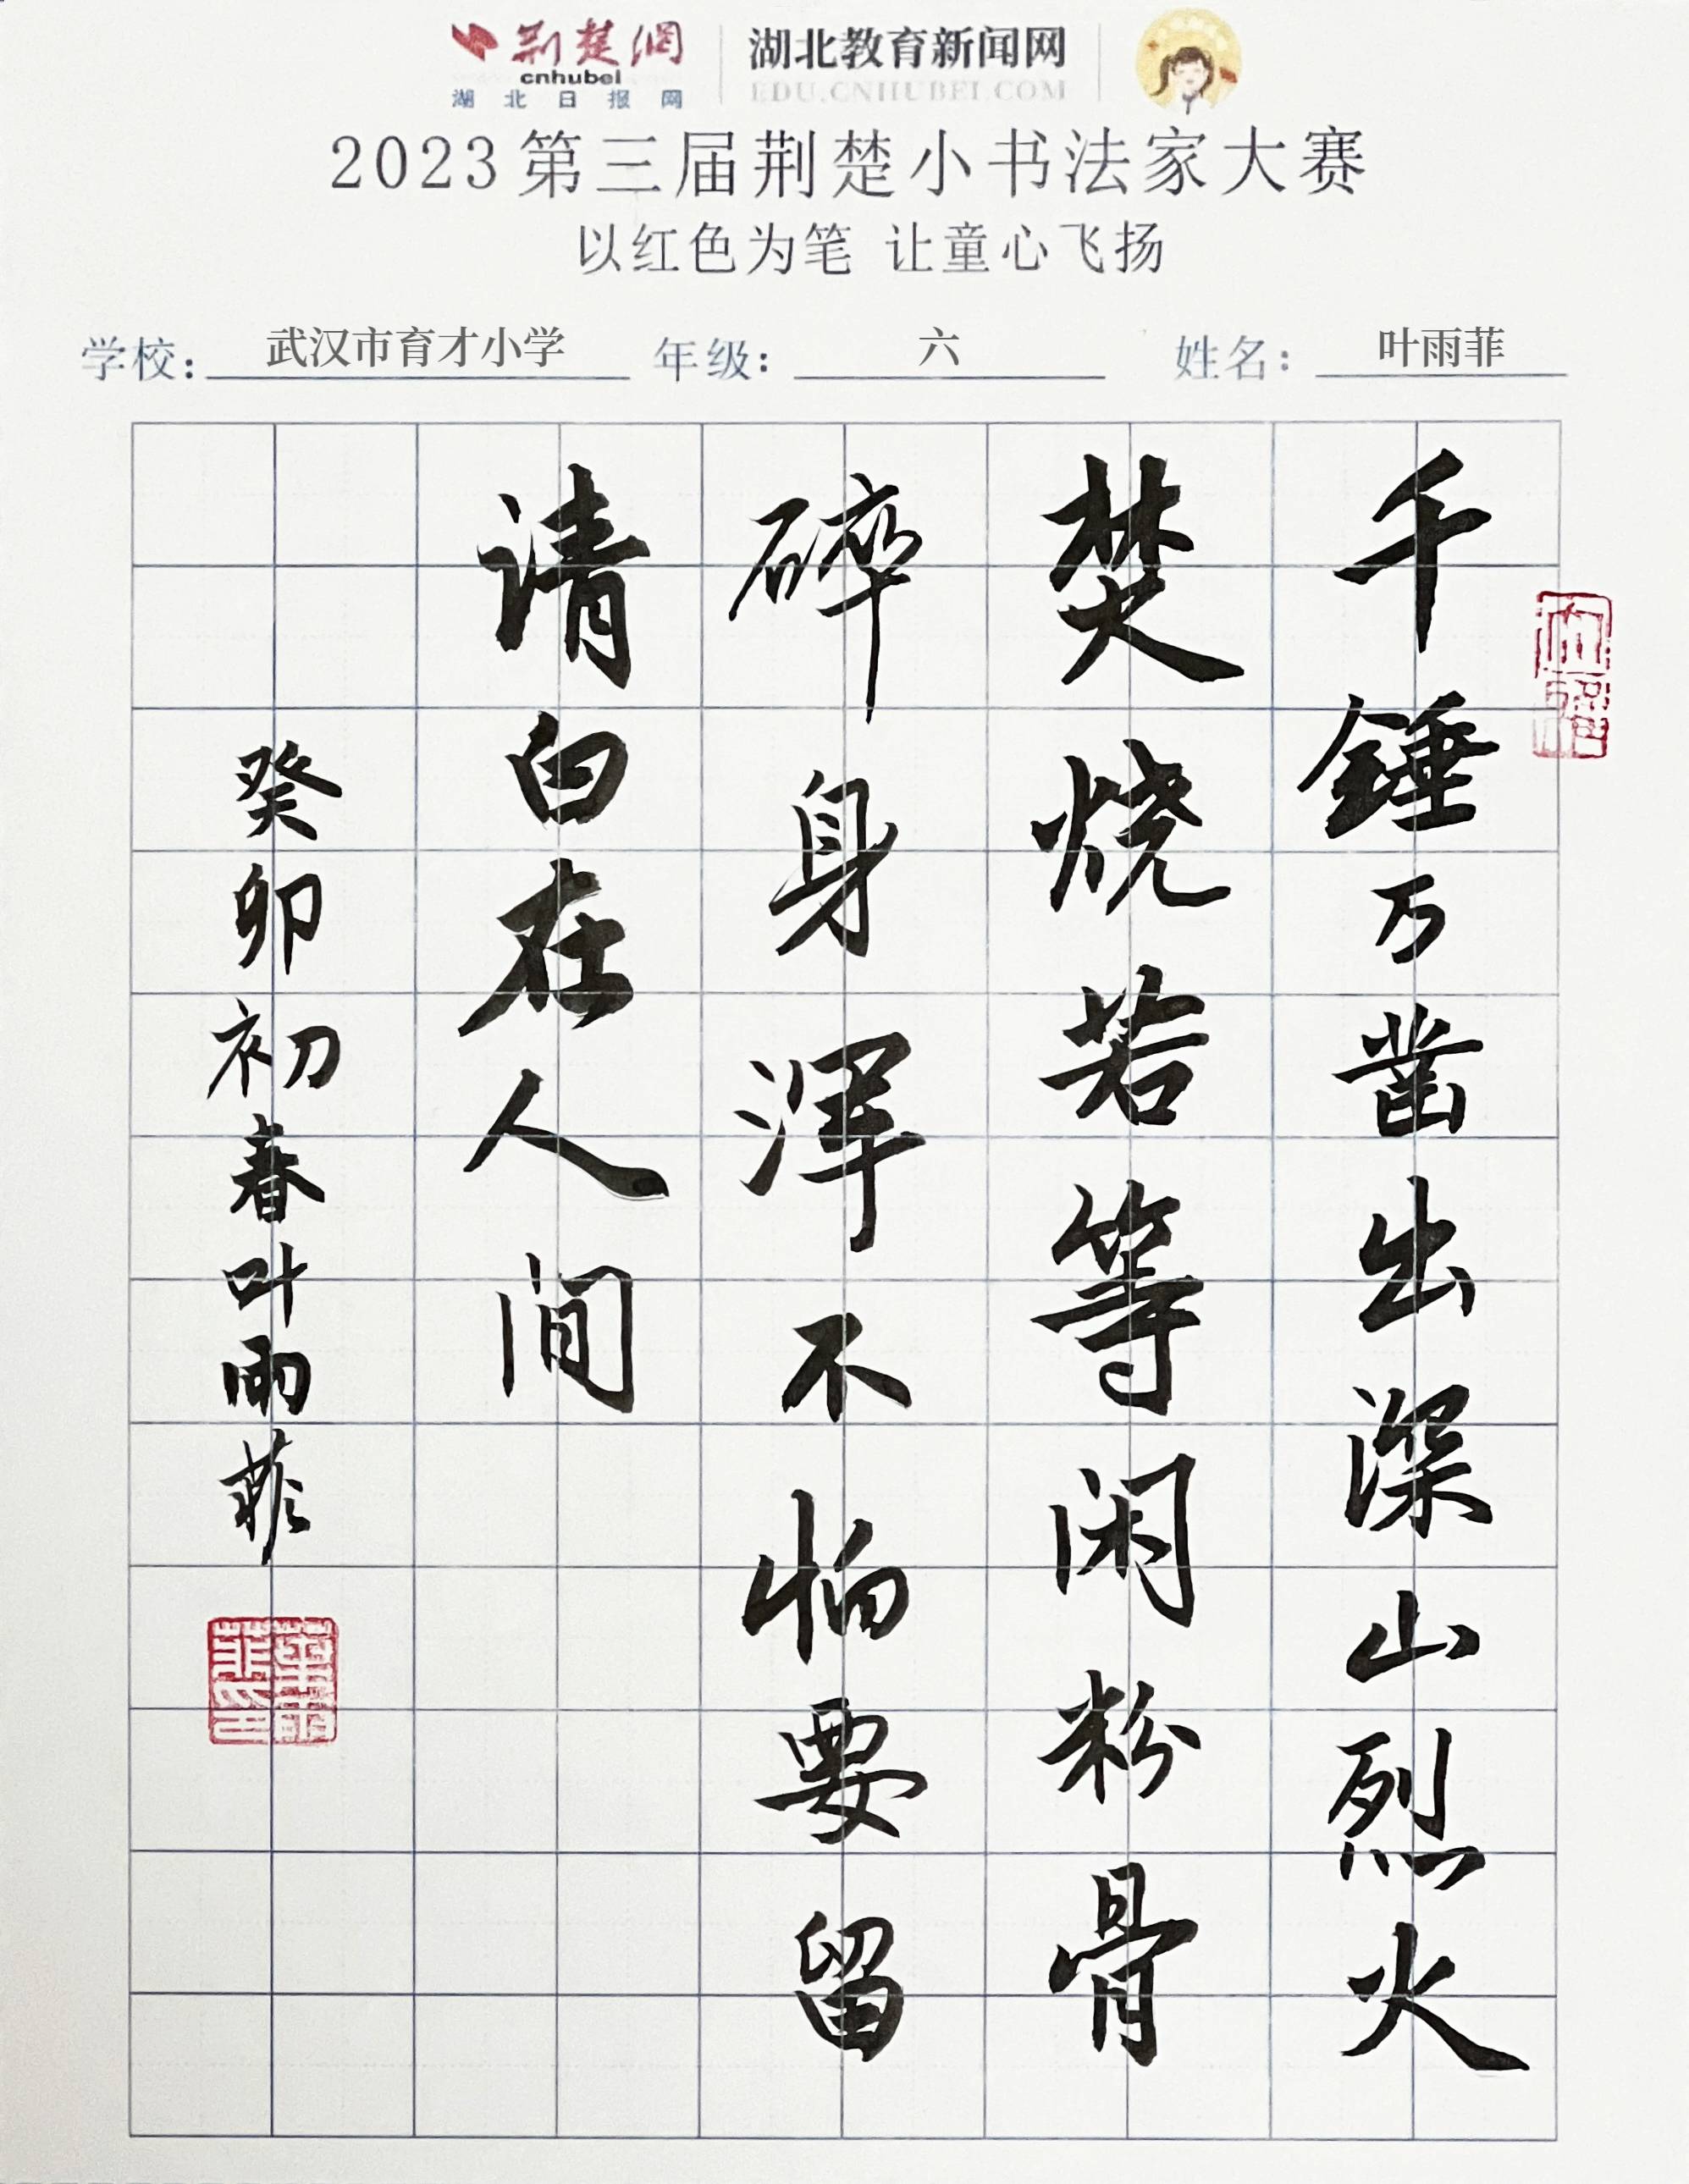 荆楚網
cnhubei
湖北日报网
湖北教育新闻网
EDU.CNHUBEI.COM
2023第三届荆楚小书法家大赛
以红色为笔 让童心飞扬
学校：武汉市育才小学 年级：六 姓名：叶雨菲
千錘万凿出深山烈火
焚烧若等闲粉骨
碎身浑不怕要留
请白在人间
癸卯初春叶雨菲
葉雨菲印